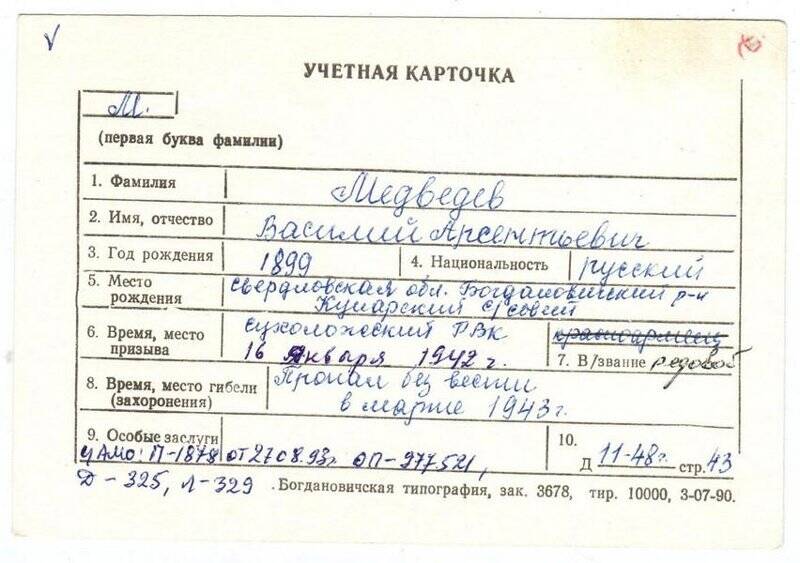 УЧЕТНАЯ КАРТОЧКА
М.
(первая буква фамилии)
1. Фамилия Медведев
2. Имя, отчество Василий Арсентьевич
3. Год рождения 1899 4. Национальность русский
5. Место рождения Свердловская обл. Богдановичский р-н
Кунарский с/совет
6. Время, место призыва Сухоложский РВК
16 января 1942 г.
красноармеец
7. В/звание рядовой
8. Время, место гибели (захоронения) Пропал без вести
в марте 1943 г.
9. Особые заслуги
ЦАМО: П-1878 от 27.08.93г. ОП-977521,
Д-325, Л-329
10.
Д 11-48г. стр. 43
Богдановичская типография, зак. 3678, тир. 10000, 3-07-90.